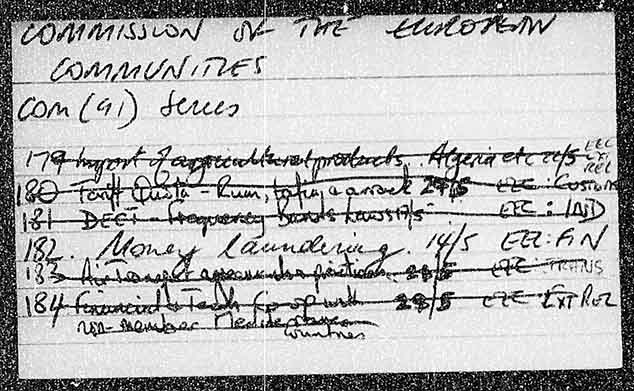 COMMISSION OF THE EUROPEAN
COMMUNITIES
COM (91) Series
179 Import of agricultural products. Algeria etc 22/5 EEC EXT REL
180 Tariff Quota - Rum, tafia & arrack 27/5 EEC: Customs
181 DECT - frequency bands 17/5 EEC: IND
182. Money laundering. 14/5 EEC: FIN
183 Air transport 28/5 EEC TRANS
184 Financial & Tech Co-op with 28/5 EEC EXT REL
non-member Mediterranean
countries